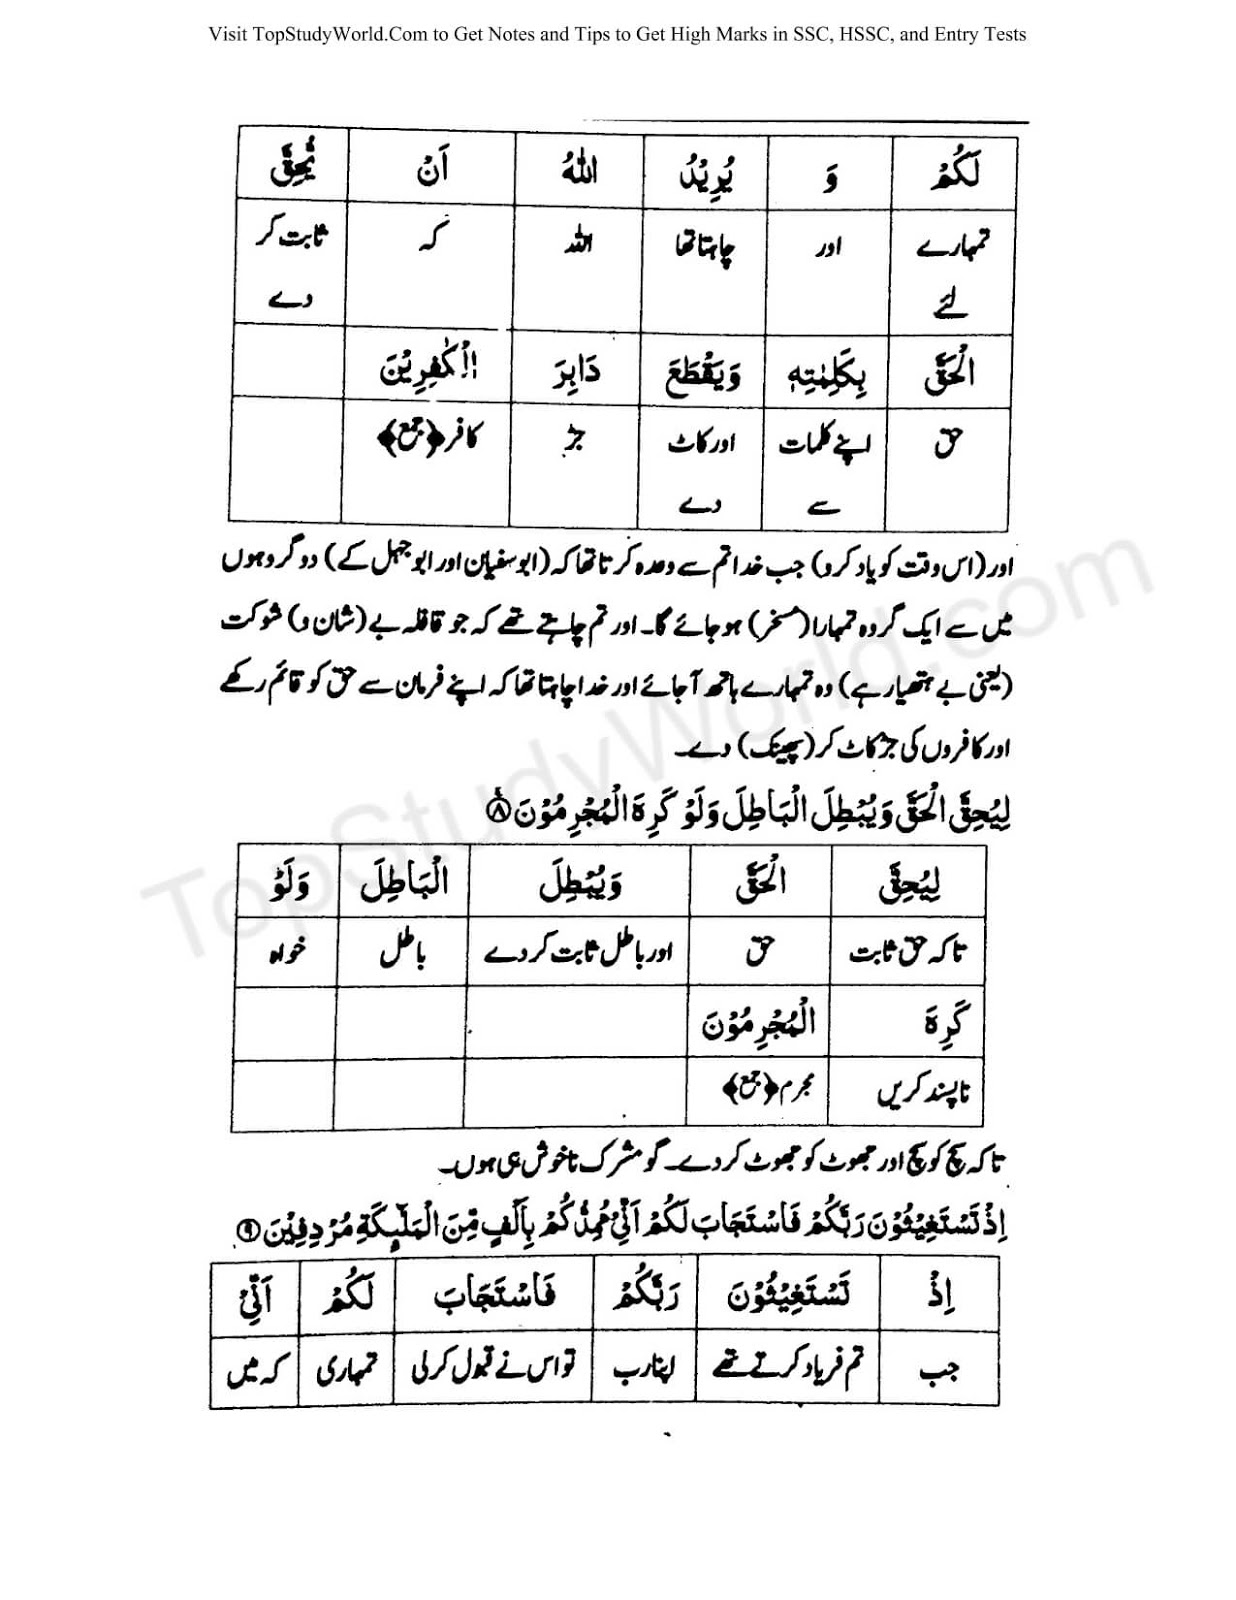 Visit TopStudyWorld.Com to Get Notes and Tips to Get High Marks in SSC, HSSC, and Entry Tests
لَكُمْ وَ يُرِيْدُ اللّٰهُ اَنْ يُّحِقَّ
تمہارے لئے اور چاہتا تھا اللہ کہ ثابت کر دے
الْحَقَّ بِكَلِمٰتِهٖ وَيَقْطَعَ دَابِرَ الْكٰفِرِيْنَ
حق اپنے کلمات سے اور کاٹ دے جڑ کافر﴿جمع﴾
اور (اس وقت کو یاد کرو) جب خدا تم سے وعدہ کرتا تھا کہ (ابو سفیان اور ابو جہل کے) دو گروہوں
میں سے ایک گروہ تمہارا (مسخر) ہو جائے گا۔ اور تم چاہتے تھے کہ جو قافلہ بے (شان و) شوکت
(یعنی بے ہتھیار ہے) وہ تمہارے ہاتھ آ جائے اور خدا چاہتا تھا کہ اپنے فرمان سے حق کو قائم رکھے
اور کافروں کی جڑ کاٹ کر (پھینک) دے۔
لِيُحِقَّ الْحَقَّ وَيُبْطِلَ الْبَاطِلَ وَلَوْ كَرِهَ الْمُجْرِمُوْنَ ۸
لِيُحِقَّ الْحَقَّ وَيُبْطِلَ الْبَاطِلَ وَلَوْ
تاکہ حق ثابت حق اور باطل ثابت کر دے باطل خواہ
كَرِهَ الْمُجْرِمُوْنَ
ناپسند کریں مجرم﴿جمع﴾
تاکہ سچ کو سچ اور جھوٹ کو جھوٹ کر دے۔ گو مشرک ناخوش ہی ہوں۔
اِذْ تَسْتَغِيْثُوْنَ رَبَّكُمْ فَاسْتَجَابَ لَكُمْ اَنِّيْ مُمِدُّكُمْ بِاَلْفٍ مِّنَ الْمَلٰٓئِكَةِ مُرْدِفِيْنَ ۹
اِذْ تَسْتَغِيْثُوْنَ رَبَّكُمْ فَاسْتَجَابَ لَكُمْ اَنِّيْ
جب تم فریاد کرتے تھے اپنا رب تو اس نے قبول کر لی تمہاری کہ میں
TopStudyWorld.com